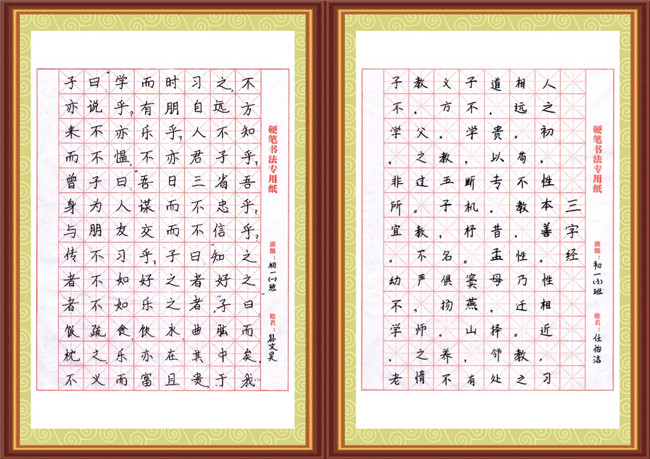 子曰学而时习之,不
亦说乎?有朋自远方
来不亦乐乎?人不知
而不愠,不亦君子乎?
曾子曰吾日三省吾
身为人谋而不忠乎?
与朋友交而不信乎?
传不习乎?子曰知之
者不如好之者好之
者不如乐之者子曰
饭疏食,饮水,曲肱而
枕之,乐亦在其中矣
不义而富且贵于我
硬笔书法专用纸 班级:初一(一)班 姓名:孙文昊
三字经
人之初,性本善。性相近,习
相远。苟不教,性乃迁。教之
道,贵以专。昔孟母,择邻处
子不学,断机杼。窦燕山,有
义方。教五子,名俱扬。养不
教,父之过。教不严,师之惰
子不学,非所宜。幼不学,老
硬笔书法专用纸 班级:初一(3)班 姓名:任怡洁